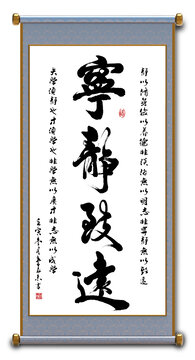 静以修身儉以養德非淡泊無以明志非寧静無以致遠
寧靜致遠
夫學須静也才須學也非學無以廣才非志無以成學
壬寅冬月